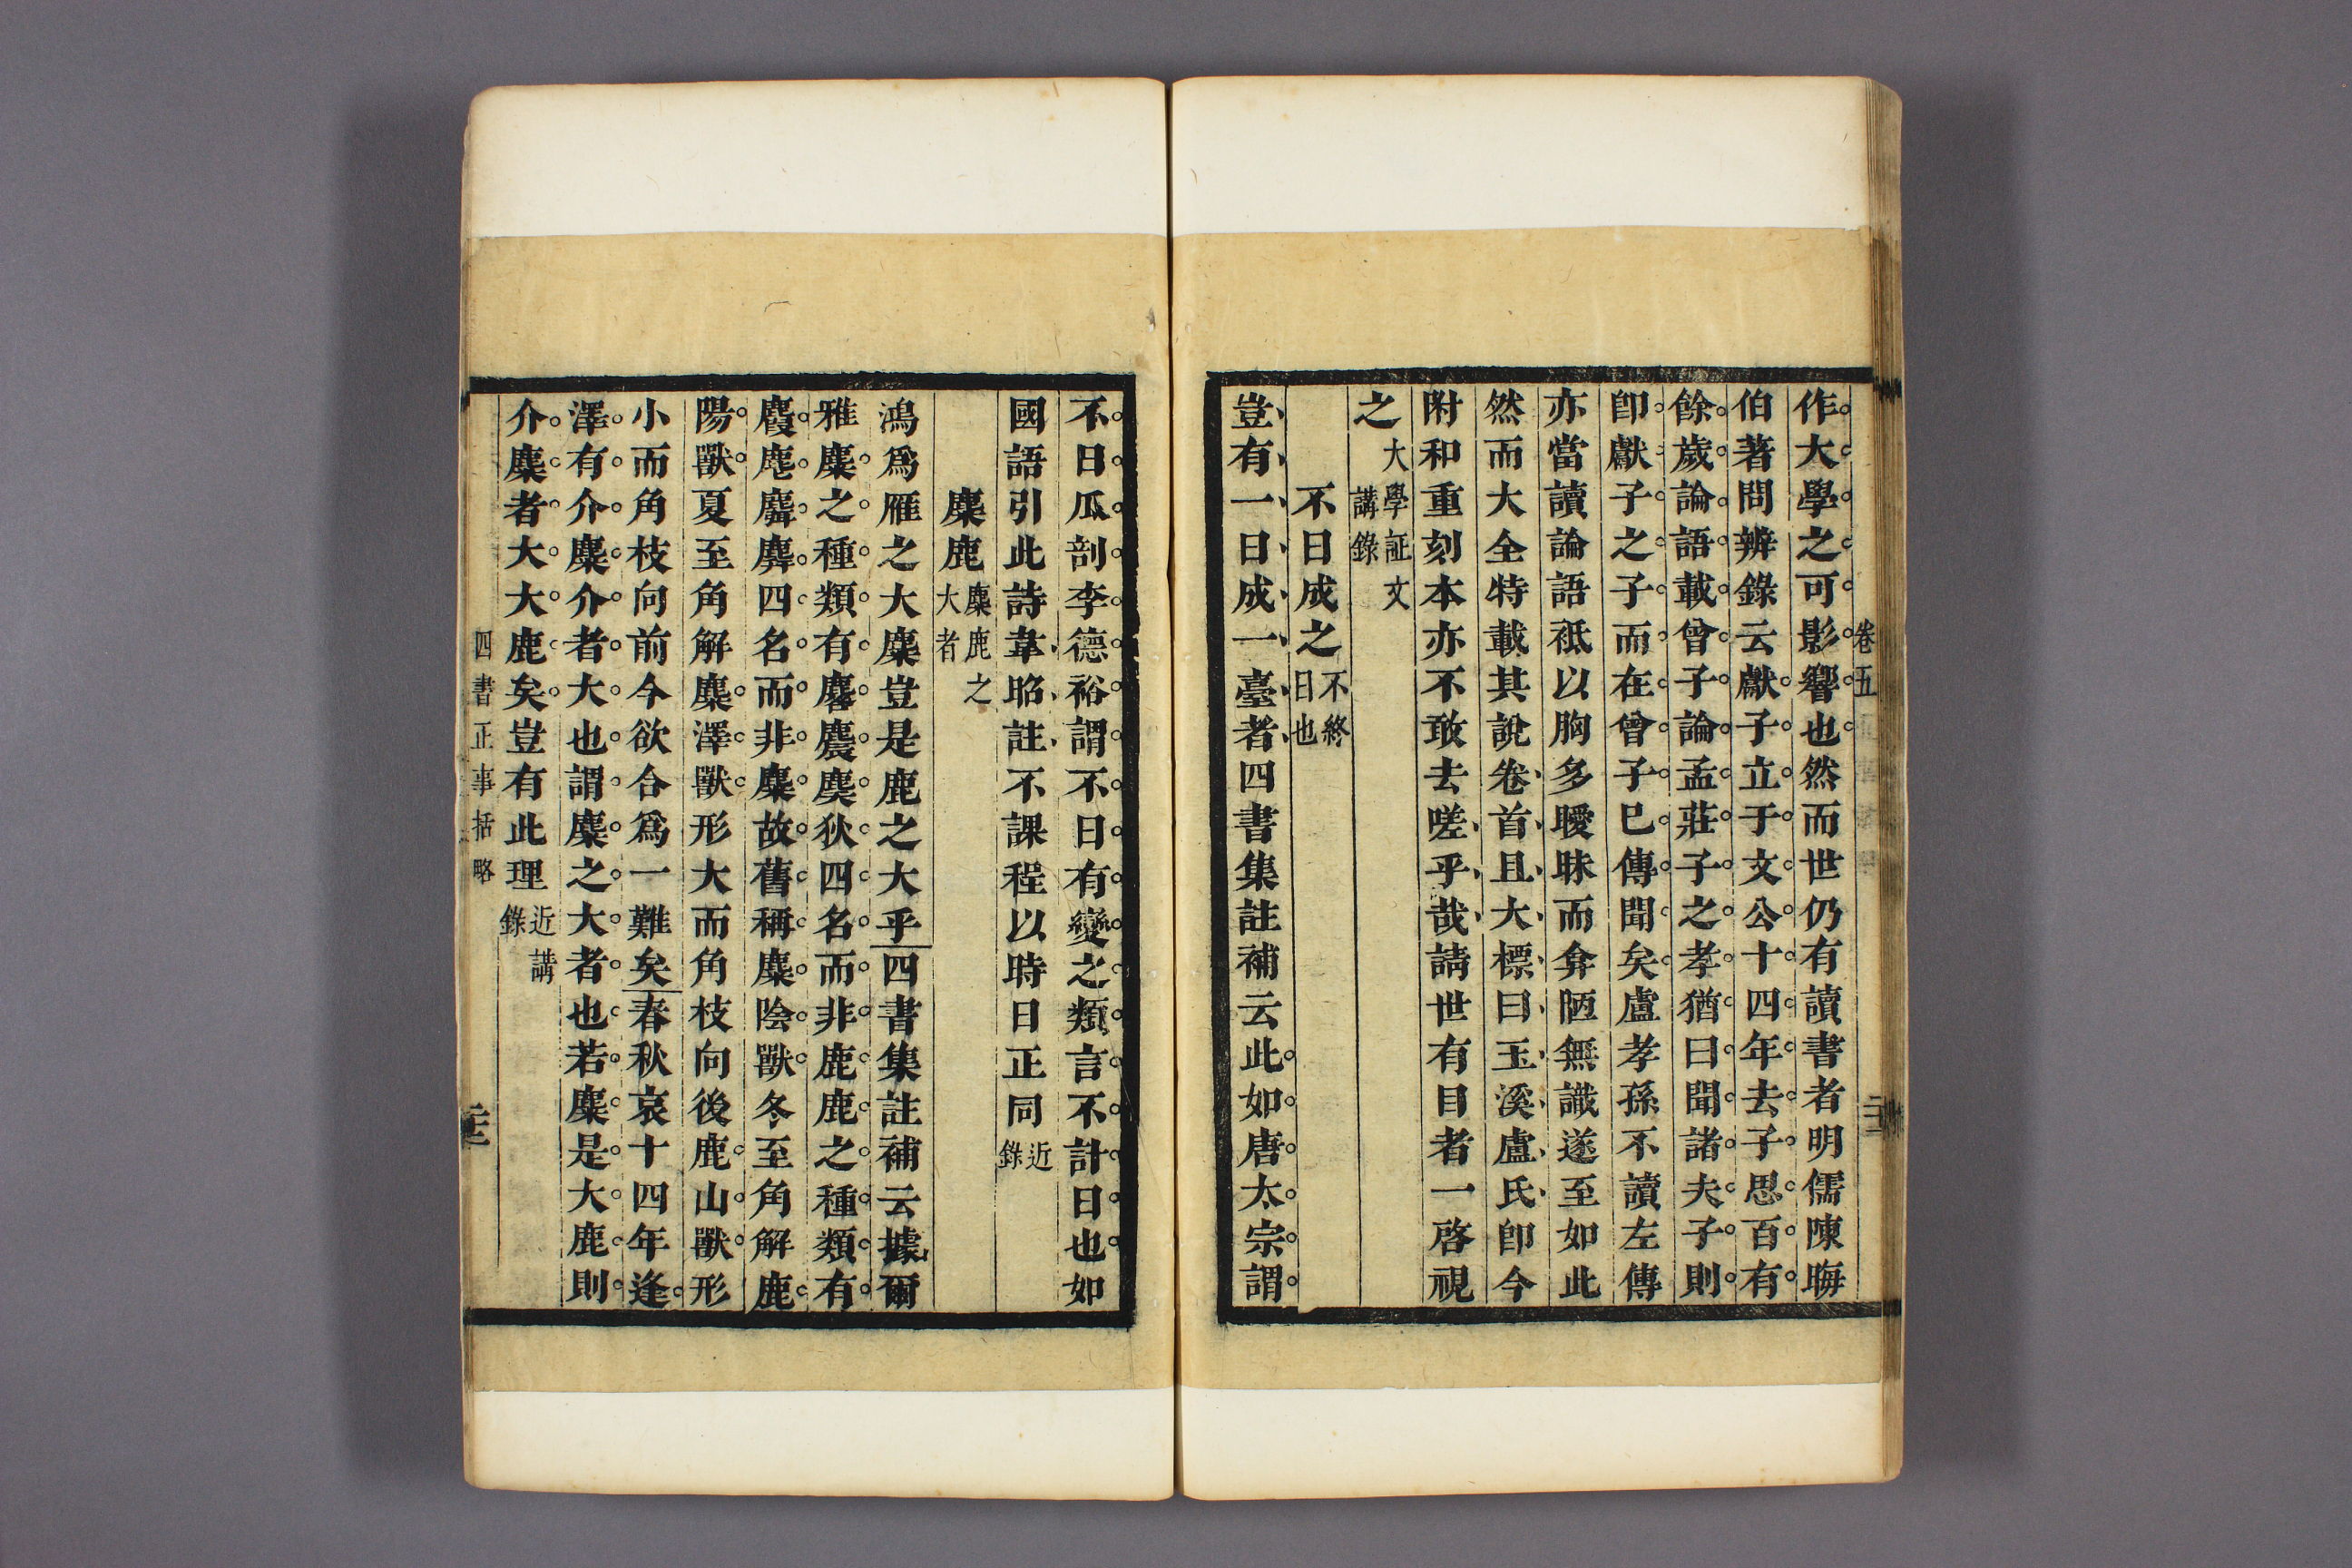 卷五
作大學之可影響也然而世仍有讀書者明儒陳晦
伯著問辨錄云獻子立于文公十四年去子思百有
餘歲論語載曾子論孟莊子之孝猶曰聞諸夫子則
卽獻子之子而在曾子巳傳聞矣盧孝孫不讀左傳
亦當讀論語祗以胸多曖昧而弇陋無識遂至如此
然而大全特載其說卷首且大標曰玉溪盧氏卽今
附和重刻本亦不敢去嗟乎哉請世有目者一啓視
之大學証文講錄
不日成之不終日也
豈有一日成一臺者四書集註補云此如唐太宗謂
不日瓜剖李德裕謂不日有變之類言不計日也如
國語引此詩韋昭註不課程以時日正同近錄
麋鹿麋鹿之大者
鴻爲雁之大麋豈是鹿之大乎四書集註補云據爾
雅麋之種類有麔麎䴠狄四名而非鹿鹿之種類有
麚麀麛麉四名而非麋故舊稱麋陰獸冬至角解鹿
陽獸夏至角解麋澤獸形大而角枝向後鹿山獸形
小而角枝向前今欲合爲一難矣春秋哀十四年逢
澤有介麋介者大也謂麋之大者也若麋是大鹿則
介麋者大大鹿矣豈有此理近講錄
四書正事括略